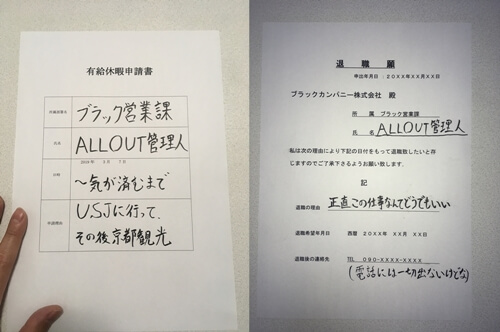 有給休暇申請書
所属部署名
ブラック営業課
氏名
ALLOUT管理人
2019年 5月 7日
日時
～気が済むまで
申請理由
USJに行って、
その後京都観光
退職願
申出年月日：２０XX年XX月XX日
ブラックカンパニー株式会社 殿
所 属 ブラック営業課
氏 名 ALLOUT管理人
私は次の理由により下記の日付をもって退職致したいと存
じますのでご了承下さるようお願い致します.
記
退職の理由 正直この仕事なんてどうでもいい
退職希望年月日 西暦 ２０XX年 XX月 XX日
退職後の連絡先 TEL 090-XXXX-XXXX
(電話には一切出ないけどな)